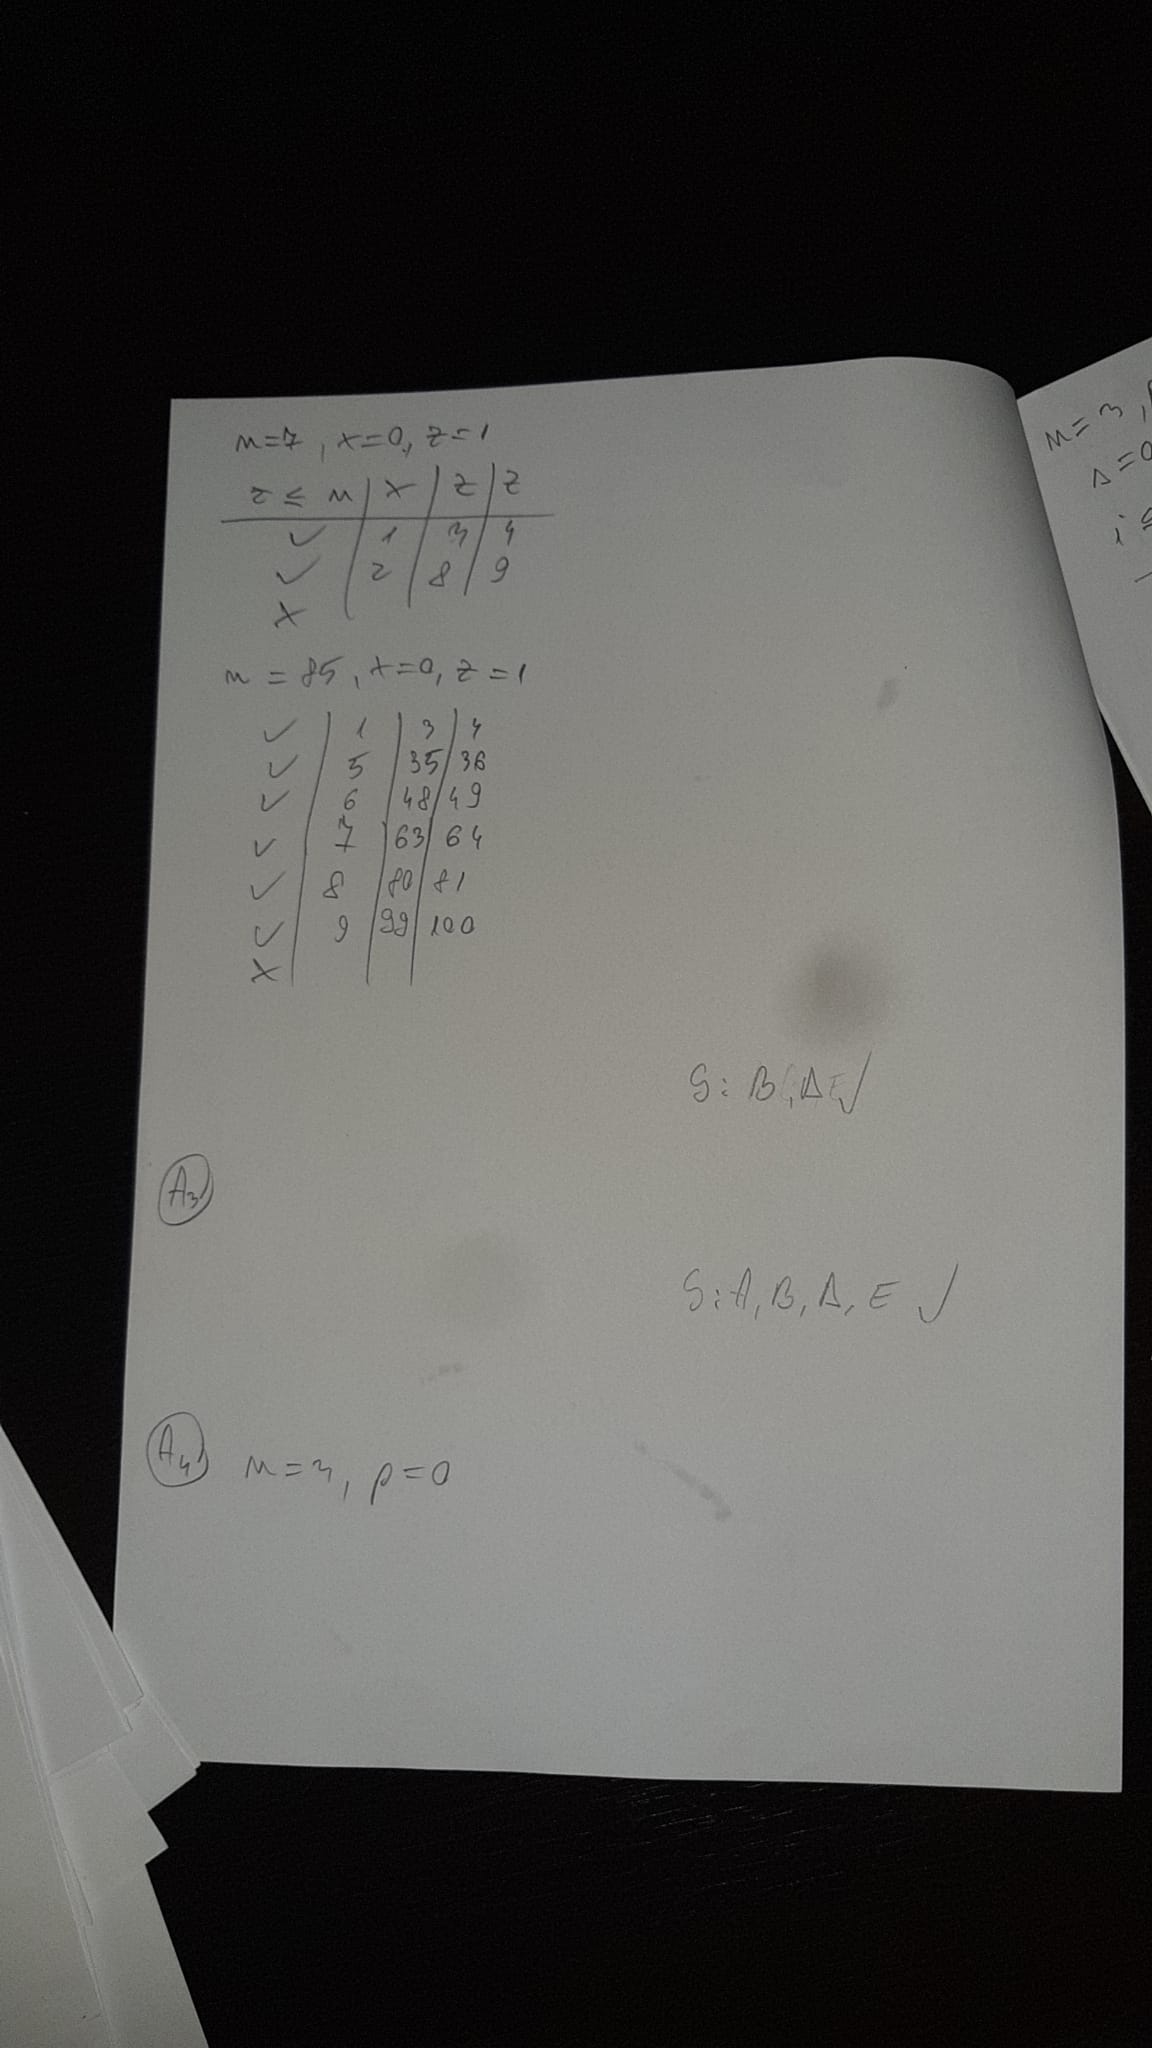 n=7, x=0, z=1
z ≤ n | x | z | z
✓ | 1 | 3 | 4
✓ | 2 | 8 | 9
x
n = 85, x=0, z=1
✓ | 1 | 3 | 4
✓ | 5 | 35 | 36
✓ | 6 | 48 | 49
✓ | 7 | 63 | 64
✓ | 8 | 80 | 81
✓ | 9 | 99 | 100
x
S: B, Δ ✓
A3
S: A, B, Δ, E ✓
A4 n=3, p=0
n=3,
Δ=0